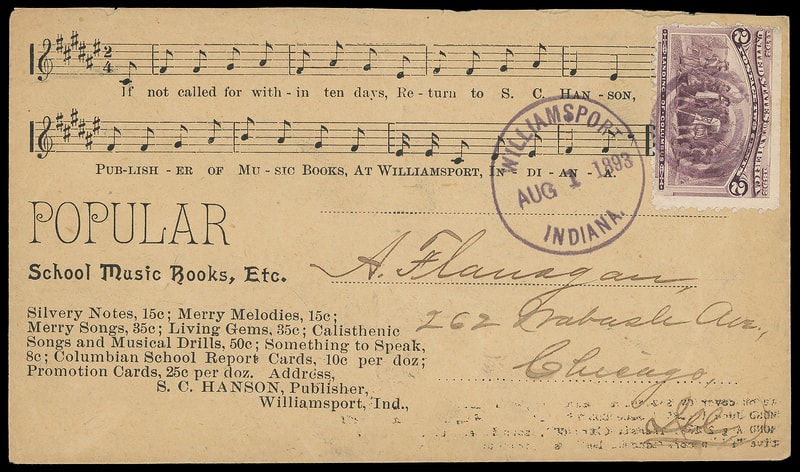 2 4
If not called for with - in ten days, Re - turn to S. C. HAN - SON,
PUB-LISH - ER OF MU - SIC BOOKS, AT WILLIAMSPORT, IN - DI - AN - A.
WILLIAMSPORT
AUG 1 1893
INDIANA.
1492 1892
UNITED STATES OF AMERICA
2 2
POPULAR
School Music Books, Etc.
Silvery Notes, 15c; Merry Melodies, 15c;
Merry Songs, 35c; Living Gems, 35c; Calisthenic
Songs and Musical Drills, 50c; Something to Speak,
8c; Columbian School Report Cards, 10c per doz;
Promotion Cards, 25c per doz. Address,
S. C. HANSON, Publisher,
Williamsport, Ind.,
A. Flanagan,
262 Wabash Ave.,
Chicago,
Ill.